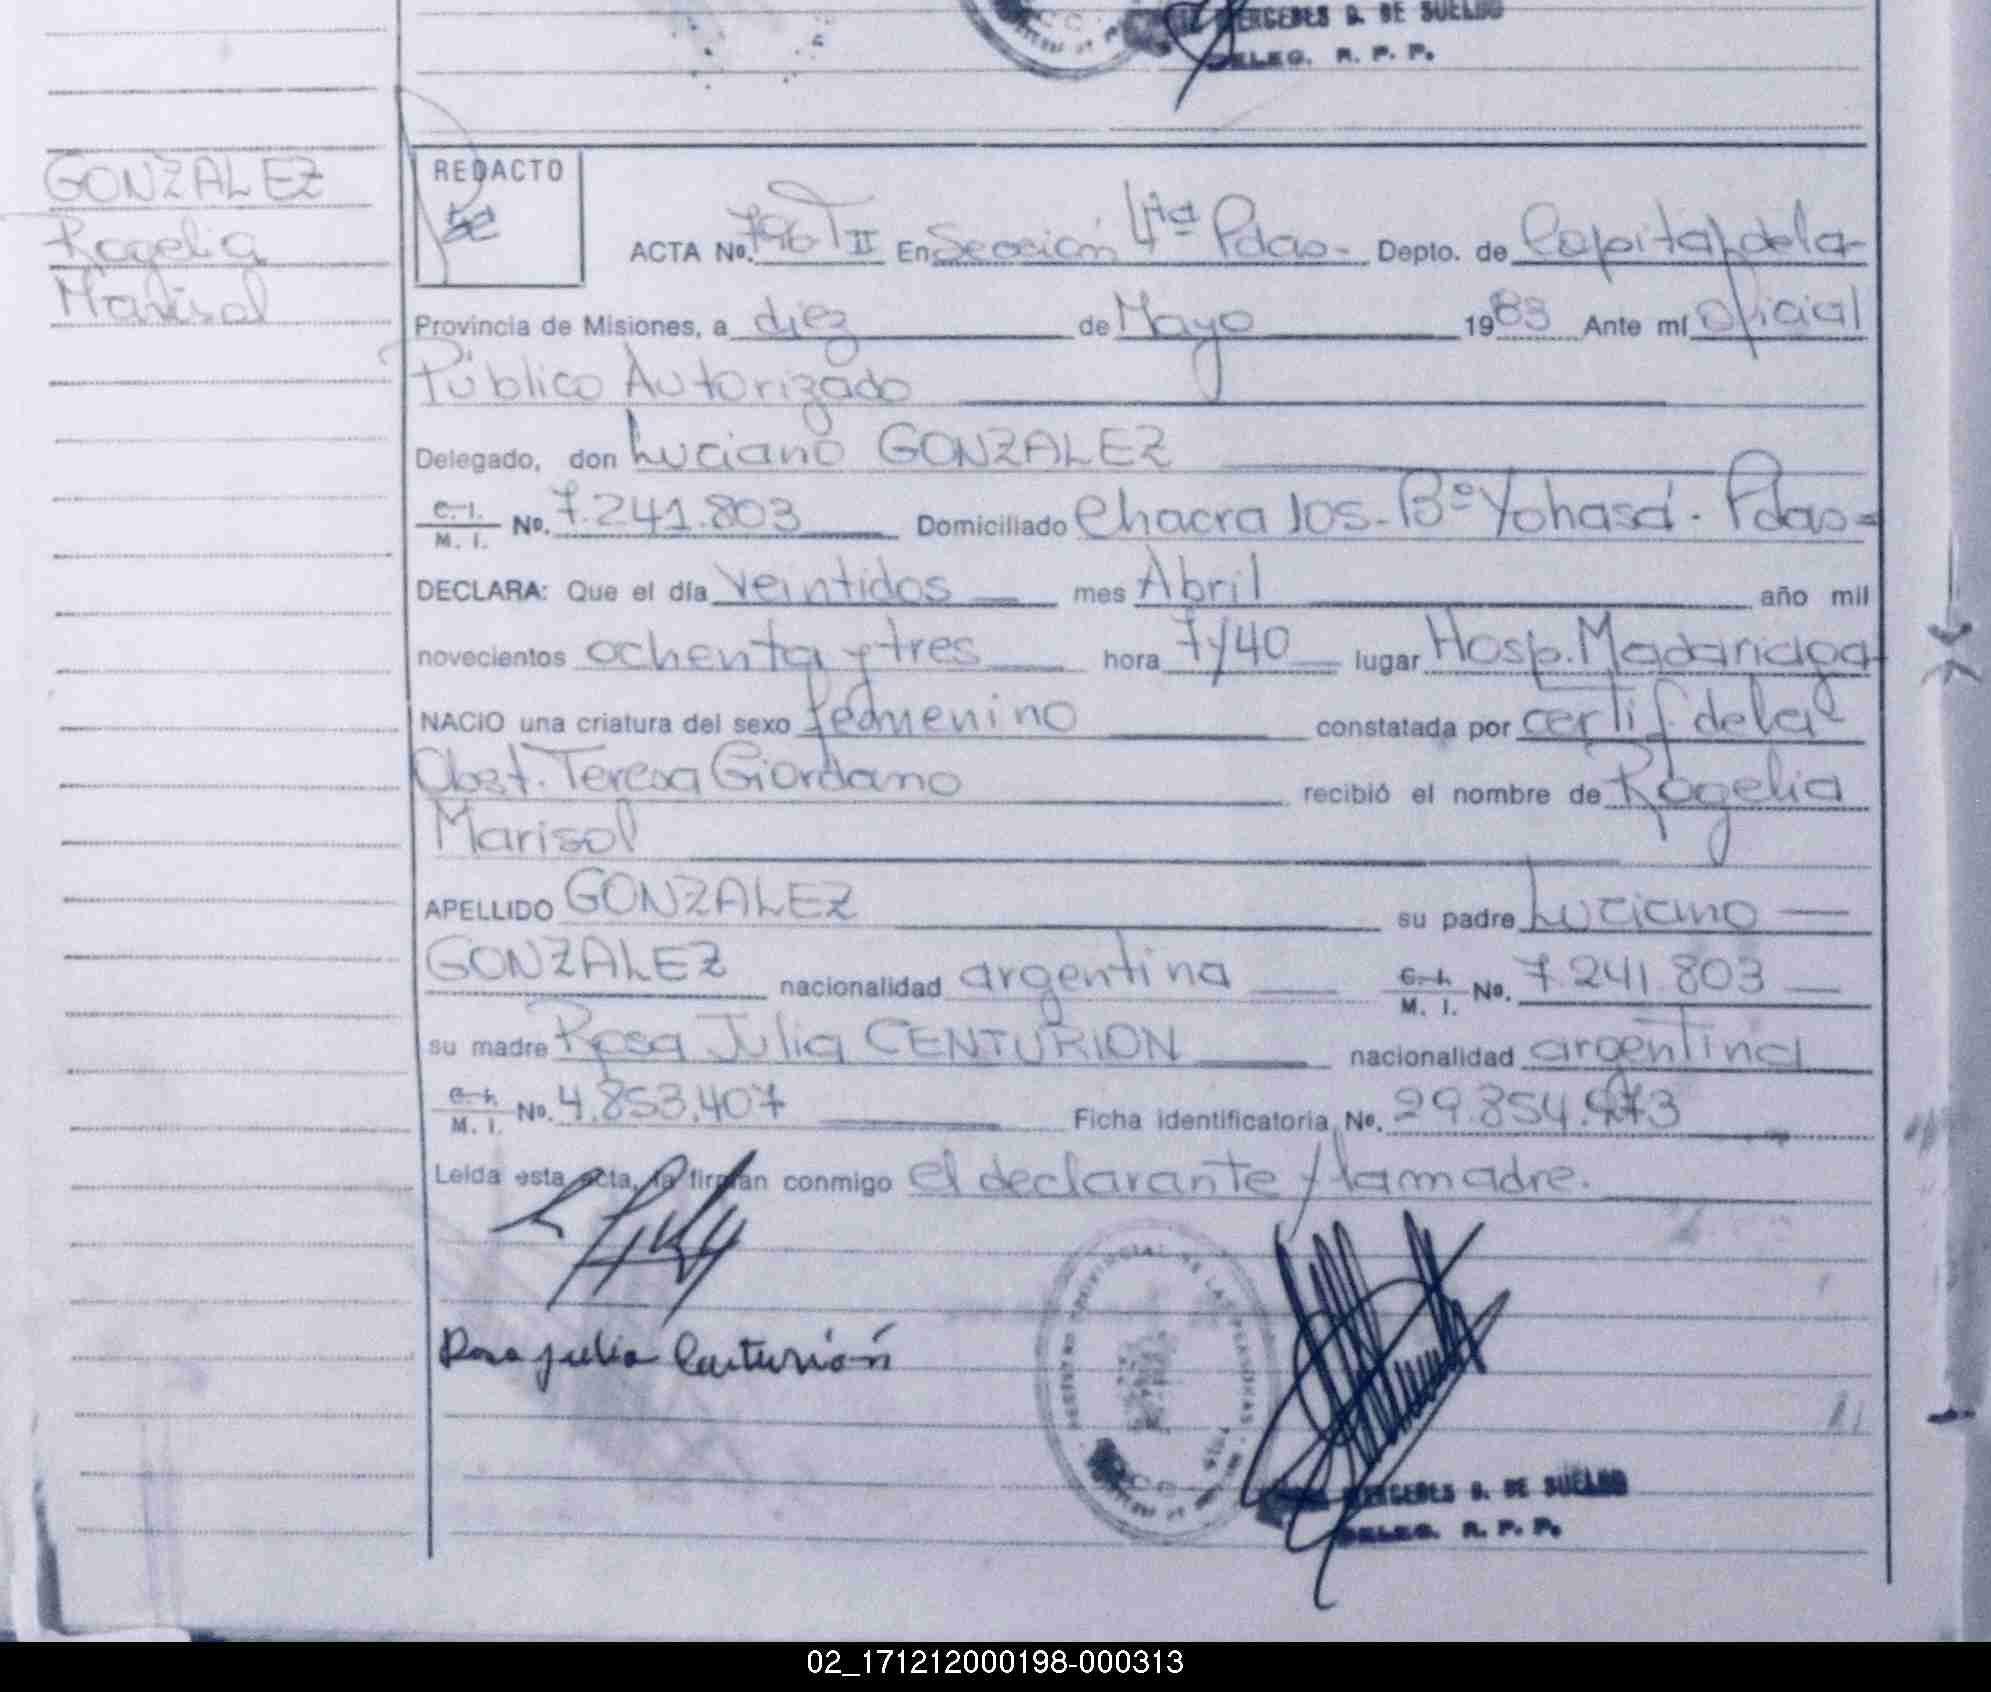 MERCEDES B. DE SUELDO
DELEG. R. P. P.
GONZALEZ
Rogelia
Marisol
REDACTO
ACTA No. 796 T II En Sección 4ta Pdas- Depto. de Capital de la-
Provincia de Misiones, a diez de Mayo 1983 Ante mí oficial
Público Autorizado
Delegado, don Luciano GONZALEZ
C. I. / M. I. No. 7.241.803 Domiciliado Chacra 105- Bº Yohasá- Pdas-
DECLARA: Que el día veintidos mes Abril año mil
novecientos ochenta y tres hora 7y40 lugar Hosp. Madariaga
NACIO una criatura del sexo femenino constatada por certif de la
Obst. Teresa Giordano recibió el nombre de Rogelia
Marisol
APELLIDO GONZALEZ su padre Luciano
GONZALEZ nacionalidad argentina C. I. / M. I. No. 7.241.803
su madre Rosa Julia CENTURION nacionalidad argentina
C. I. / M. I. No. 4.853.407 Ficha identificatoria No. 29.854.
Leída esta acta, la firman conmigo el declarante y la madre.
Rosa Julia Centurión
MERCEDES B. DE SUELDO
DELEG. R. P. P.
02_171212000198-000313